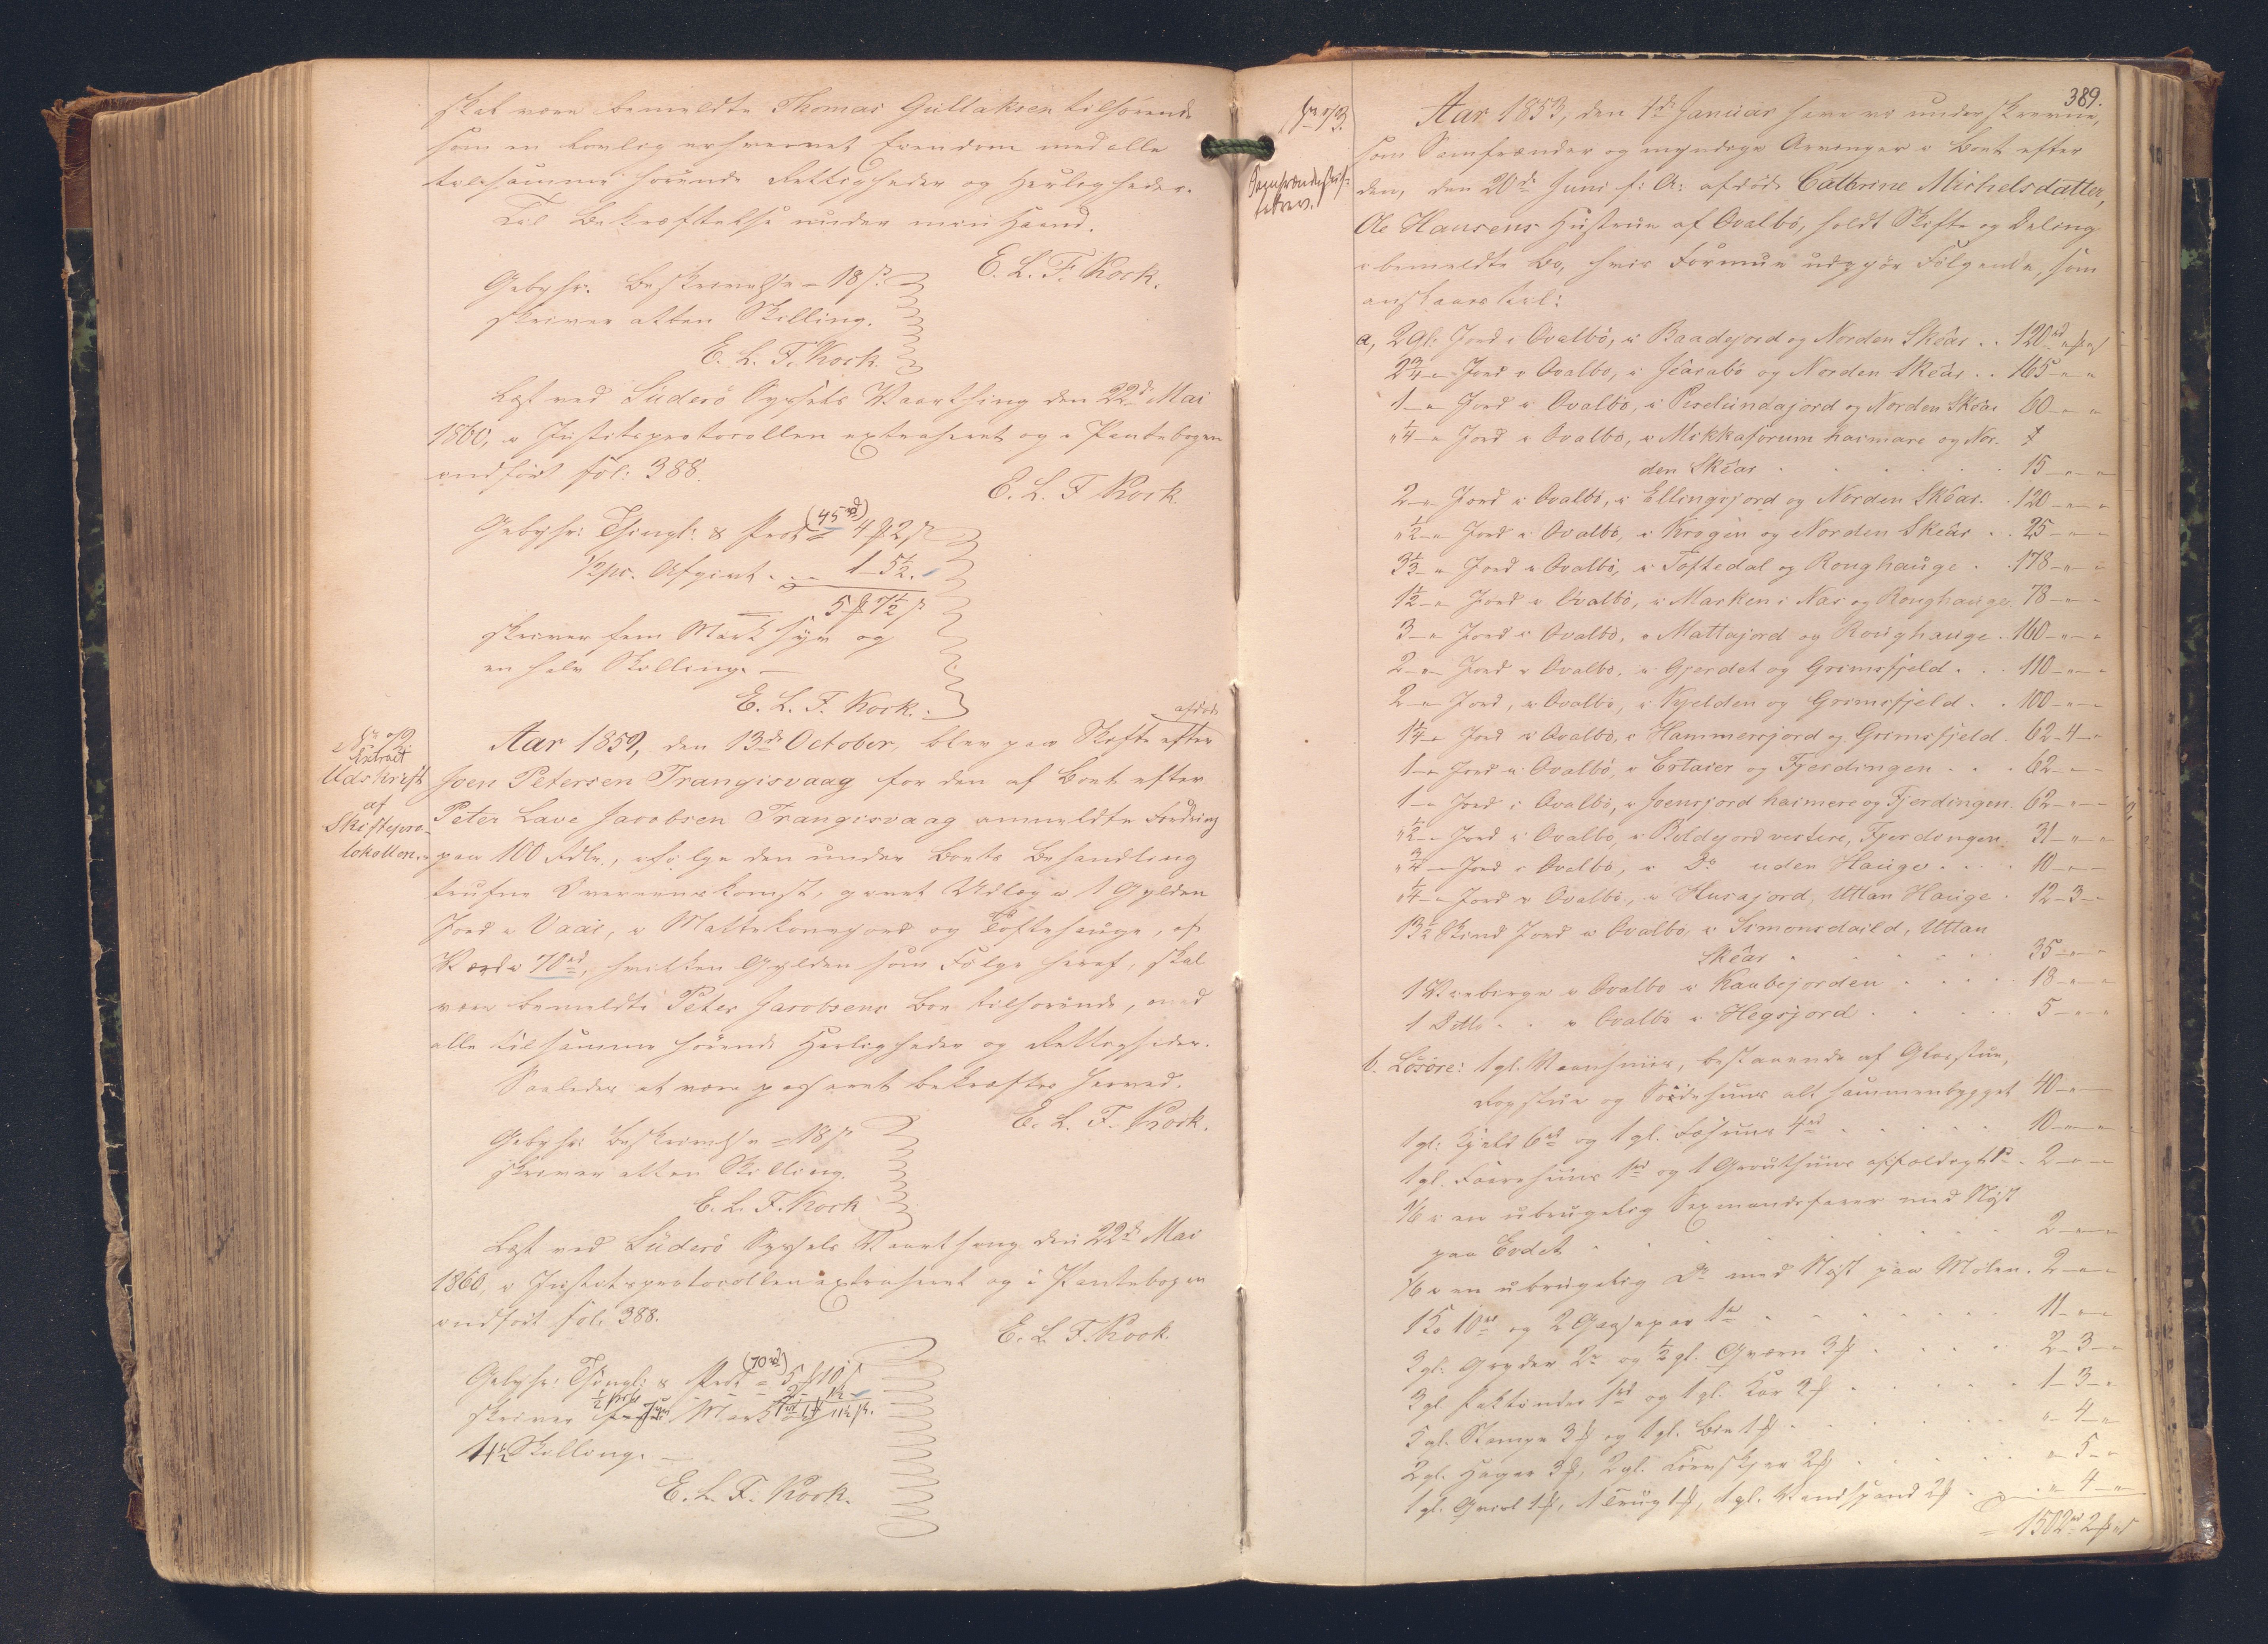 skal være bemeldte Thomas Gullaksen tilhörende
som en lovlig erhvervet Eiendom med alle
tilsamme hörende Rettigheder og Herligheder.
Til Bekræftelse under min Haand.
E. L. F. Kock.
Gebyhr. Beskrivelse = 18 s
skriver atten Skilling.
E. L. F. Kock.
Læst ved Süderö Syssels Vaarthing den 22de Mai
1860, i Justitsprotocollen extraheret og i Pantebogen
indfört fol: 388.
E. L. F Kock.
(45 rd)
Gebyhr: Thingl: & Prot = 4 2
1/2 pc. Afgivt . . . 1 - 5 1/2.
5 7 1/2
skriver fem Mark syv og
en halv Skilling. —
E. L. F. Kock.
No
Extract
Udskrift
af
Skiftepro-
tokollen.
afdöde
Aar 1859, den 13de October, blev paa Skifte efter
Joen Petersen Trangisvaag for den af Boet efter
Peter Lave Jacobsen Trangisvaag anmeldte Fordring
paa 100 Rdlr., ifölge den under Boets Behandling
trufne Overeenskomst, givet Udlæg i 1 Gylden
Jord i Vaai, i Mattekonejord og Toftehauge, af
Værdi 70 rd, hvilken Gylden som Fölge heraf, skal
være bemeldte Peter Jacobsens Boe tilhörende, med
alle tilsamme hörende Herligheder og Rettigheder.
Saaledes at være passeret bekræftes herved.
E. L. F. Kock.
Gebyhr: Beskrivelse = 18
skriver atten Skilling.
E. L. F. Kock
Læst ved Süderö Syssels Vaarthing den 22de Mai
1860, i Justitsprotocollen extraheret og i Pantebogen
indfört fol. 388.
E. L. F. Kock.
(70 rd)
Gebyhr: Thingl: & Prot = 5 10
skriver Mark og
11 1/2 Skilling. —
E. L. F. Kock.
389.
Samfrændeskif-
tebrev.
Aar 1853, den 4de Januar have vi underskrevne,
som Samfrænder og myndige Arvinger i Boet efter
den, den 20de Juni f: A: afdöde Cathrine Michelsdatter,
Ole Hansens Hustrue af Ovalbö, holdt Skifte og Deling
i bemeldte Bo, hvis Formue udgjör Fölgende, som
anslaaes til:
a, 2 gl: Jord i Ovalbö, i Baadejord og Norden Skêar . . 120 rd
2 3/4 - " Jord i Ovalbö, i Jêarabö og Norden Skêar . . 165 - " - "
1 - " Jord i Ovalbö, i og Norden Skêar 60 - " - "
" 1/4 - " Jord i Ovalbö, i Mikkaforum haimare og Nor-
den Skêar . . . 15 - " - "
2 - " Jord i Ovalbö, i Ellingsjord og Norden Skêar. . 120 - " - "
" 1/2 - " Jord i Ovalbö, i Krogen og Norden Skêar . . 25 - " - "
3 1/3 - " Jord i Ovalbö, i Toftedal og Roughauge . . 178 - " - "
1 1/2 - " Jord i Ovalbö, i Marken i Nas og Roughauge 78 - " - "
3 - " Jord i Ovalbö, i Mattajord og Roughauge . . 160 - " - "
2 - " Jord i Ovalbö, i Gjerdet og Grimsfjeld . . . 110 - " - "
2 - " Jord, i Ovalbö, i Kjelden og Grimsfjeld . . 100 - " - "
1 1/4 - " Jord i Ovalbö, i Hammersjord og Grimsfjeld . 62 - 4 - "
1 - " Jord i Ovalbö, i Ertaier og Fjerdingen . . . 62 - " - "
1 - " Jord i Ovalbö, i Joensjord haimere og Fjerdingen. 62 - " - "
" 1/2 - " Jord i Ovalbö, i Boldejord vestere, Fjerdingen. 31 - " - "
" 3/4 - " Jord i Ovalbö, i Do uden Hauge . . . . 10 - " - "
" 1/4 - " Jord i Ovalbö, i Husajord, Uttan Hauge . 12 - 3 - "
13 1/2 Skind Jord i Ovalbö, i Simonsdaild, Uttan
Skêar . . . . 35 - " - "
1 i Ovalbö i Kaubejorden . . . . 18 - " - "
1 Ditto . . i Ovalbö i Hegsjord . . . . . 5 - " - "
b. Lösöre: 1 gl. Vaanhuus, bestaaende af Glasstue,
Rogstue og alt sammenbygget 40 - " - "
1 gl: Hjeld 6 rd og 1 gl. Fæhuus 4 rd . . . . . 10 - " - "
1 gl. Faarehuus 1 rd og 1 affældigt 1 . 2 - " - "
1/6 i en ubrugelig Sexmandsfarer med Nöst
paa Eydet . . . . . . . 2 - " - "
1/6 i en ubrugelig Do med Nöst paa Mölen . 2 - " - "
1 Ko 10 rd og 2 1 rd . . . . . . 11 - " - "
3 gl: Gryder 2 rd og 1/2 gl. Qværn 3 . . . . . 2 - 3 - "
3 gl. 1 rd og 1 gl. Kar 3 . . . . . 1 - 3 - "
5 gl. Stampe 3 og 1 gl. 1 . . . . . " - 4 - "
2 gl. 3, 2 gl. 2 . . . . " - 5 - "
1 gl. 1, 1 Trug 1, 1 gl. Vandspand 2 . . " - 4 - "
= 1502 rd 2